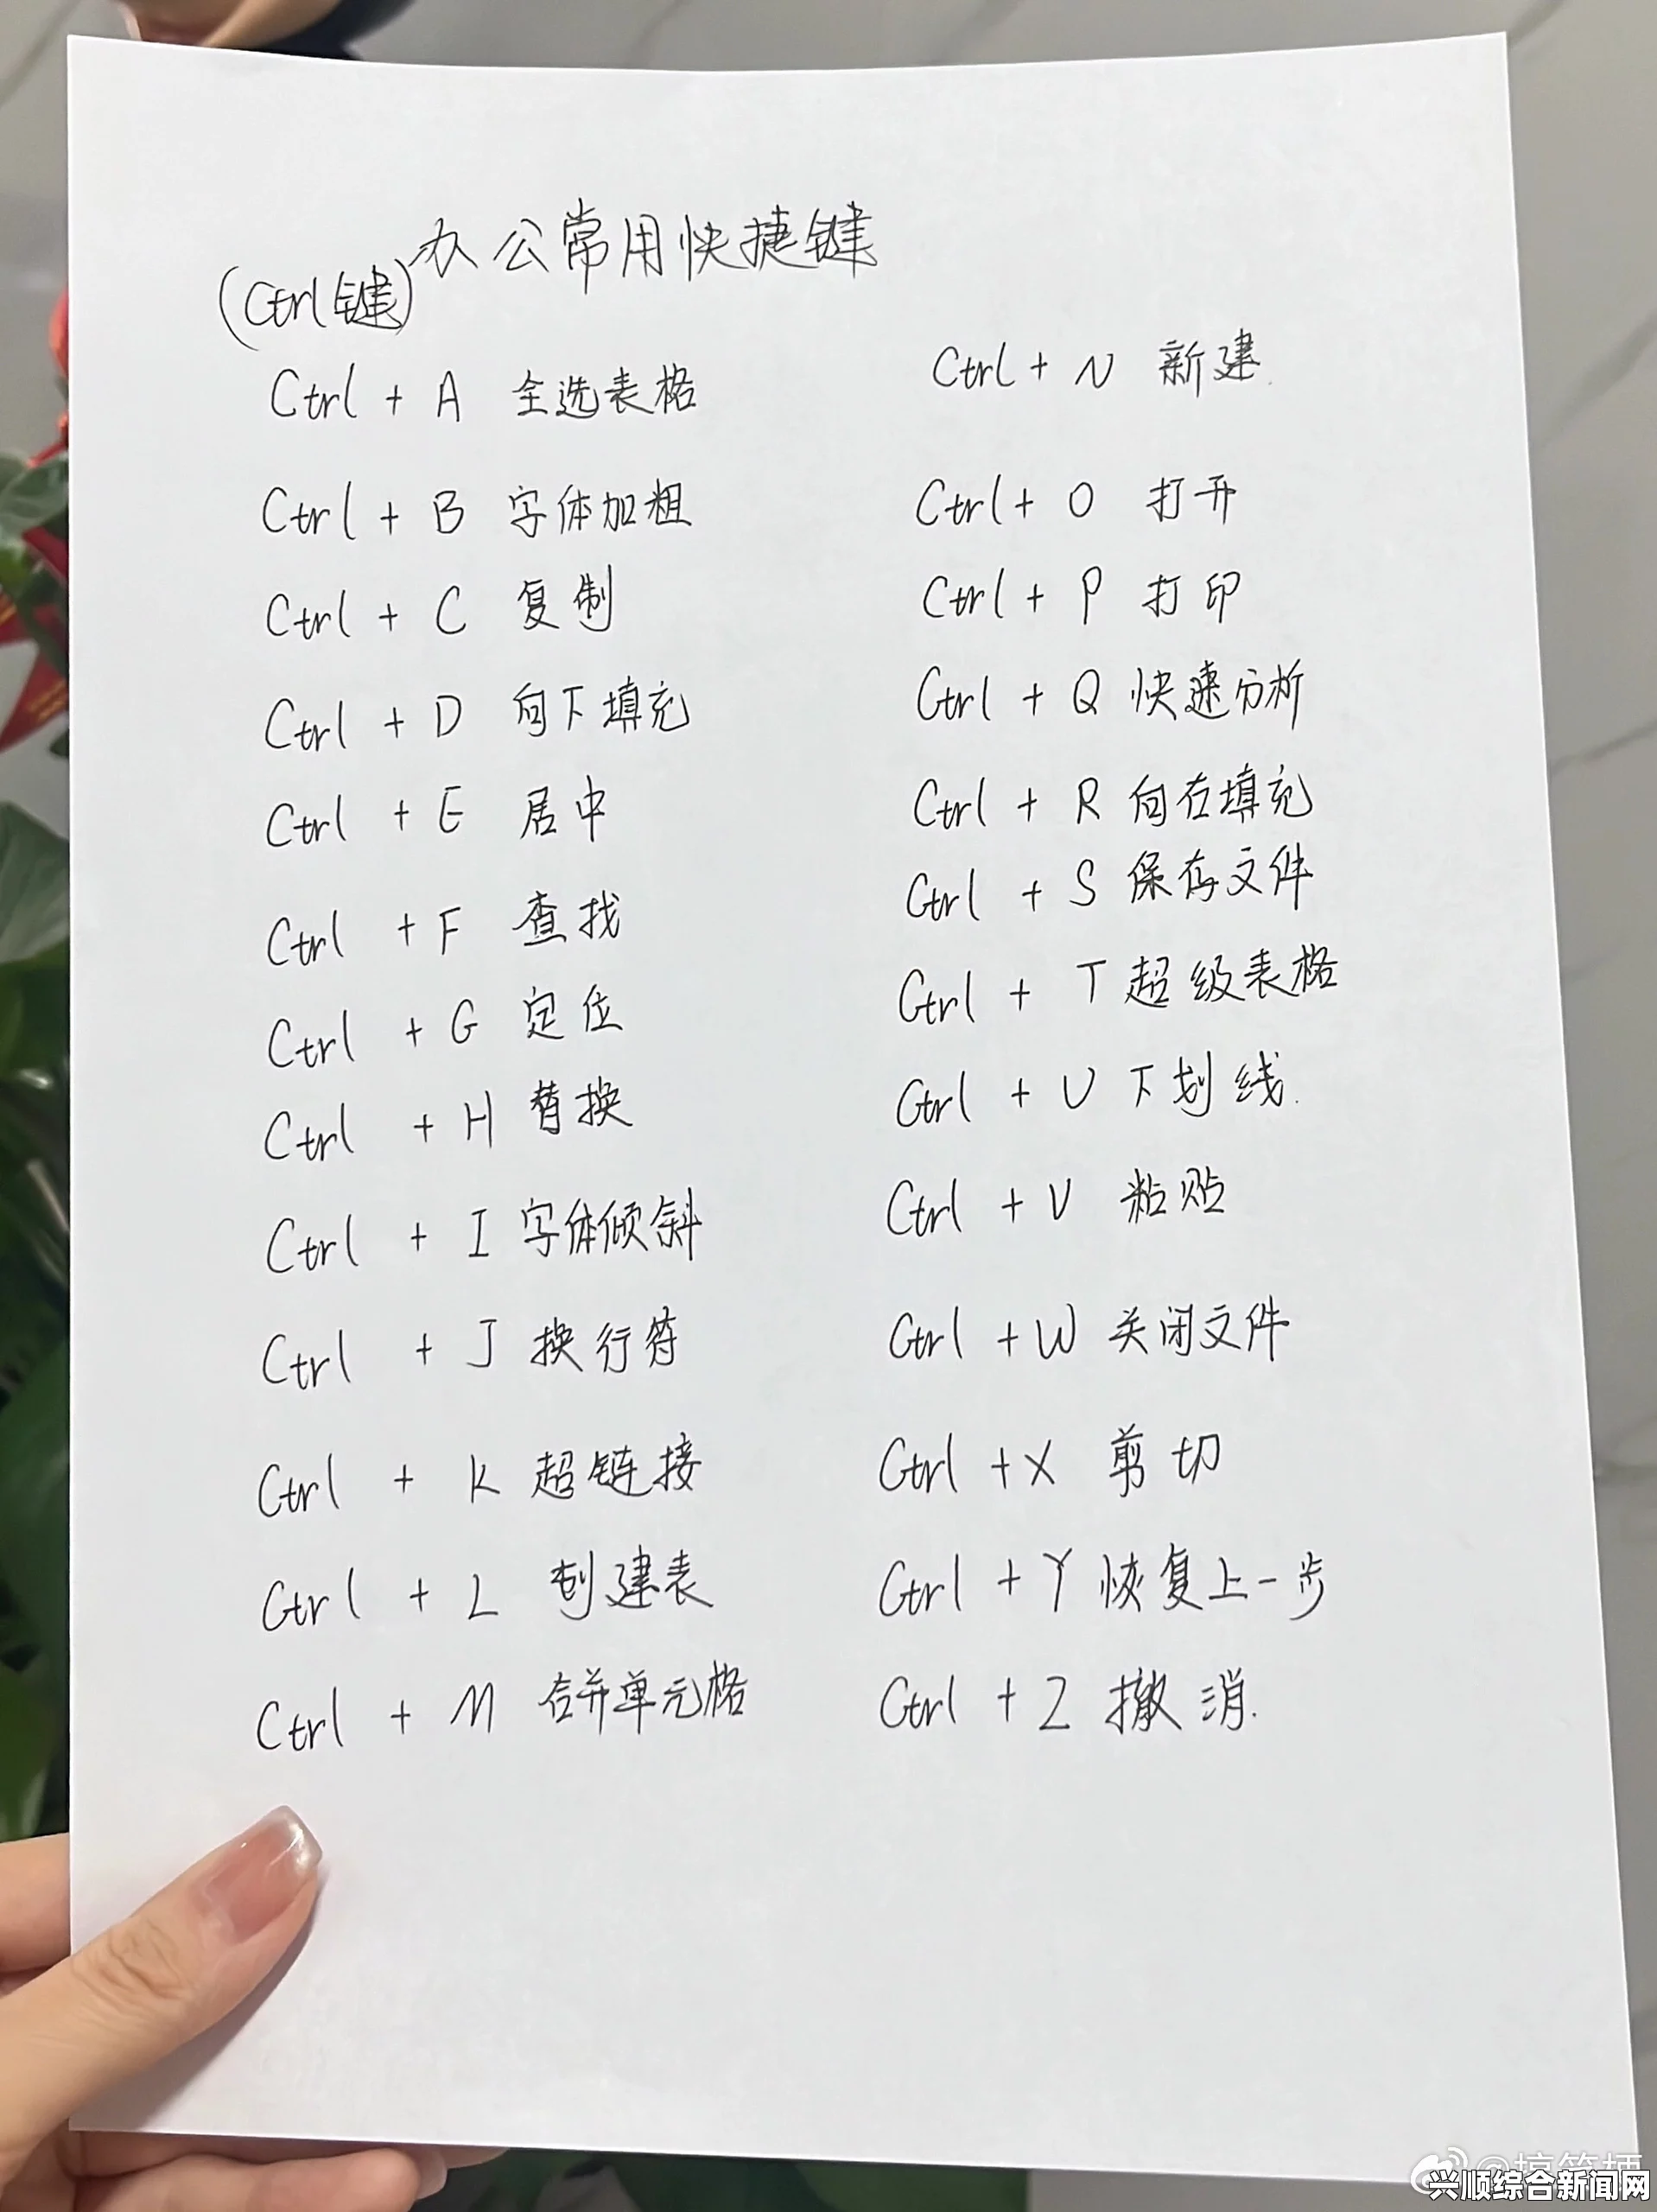 办公常用快捷键
(Ctrl键)
Ctrl + A 全选表格
Ctrl + B 字体加粗
Ctrl + C 复制
Ctrl + D 向下填充
Ctrl + E 居中
Ctrl + F 查找
Ctrl + G 定位
Ctrl + H 替换
Ctrl + I 字体倾斜
Ctrl + J 换行符
Ctrl + K 超链接
Ctrl + L 创建表
Ctrl + M 合并单元格
Ctrl + N 新建
Ctrl + O 打开
Ctrl + P 打印
Ctrl + Q 快速分析
Ctrl + R 向右填充
Ctrl + S 保存文件
Ctrl + T 超级表格
Ctrl + U 下划线.
Ctrl + V 粘贴
Ctrl + W 关闭文件
Ctrl + X 剪切
Ctrl + Y 恢复上一步
Ctrl + Z 撤消.
兴顺综合新闻网